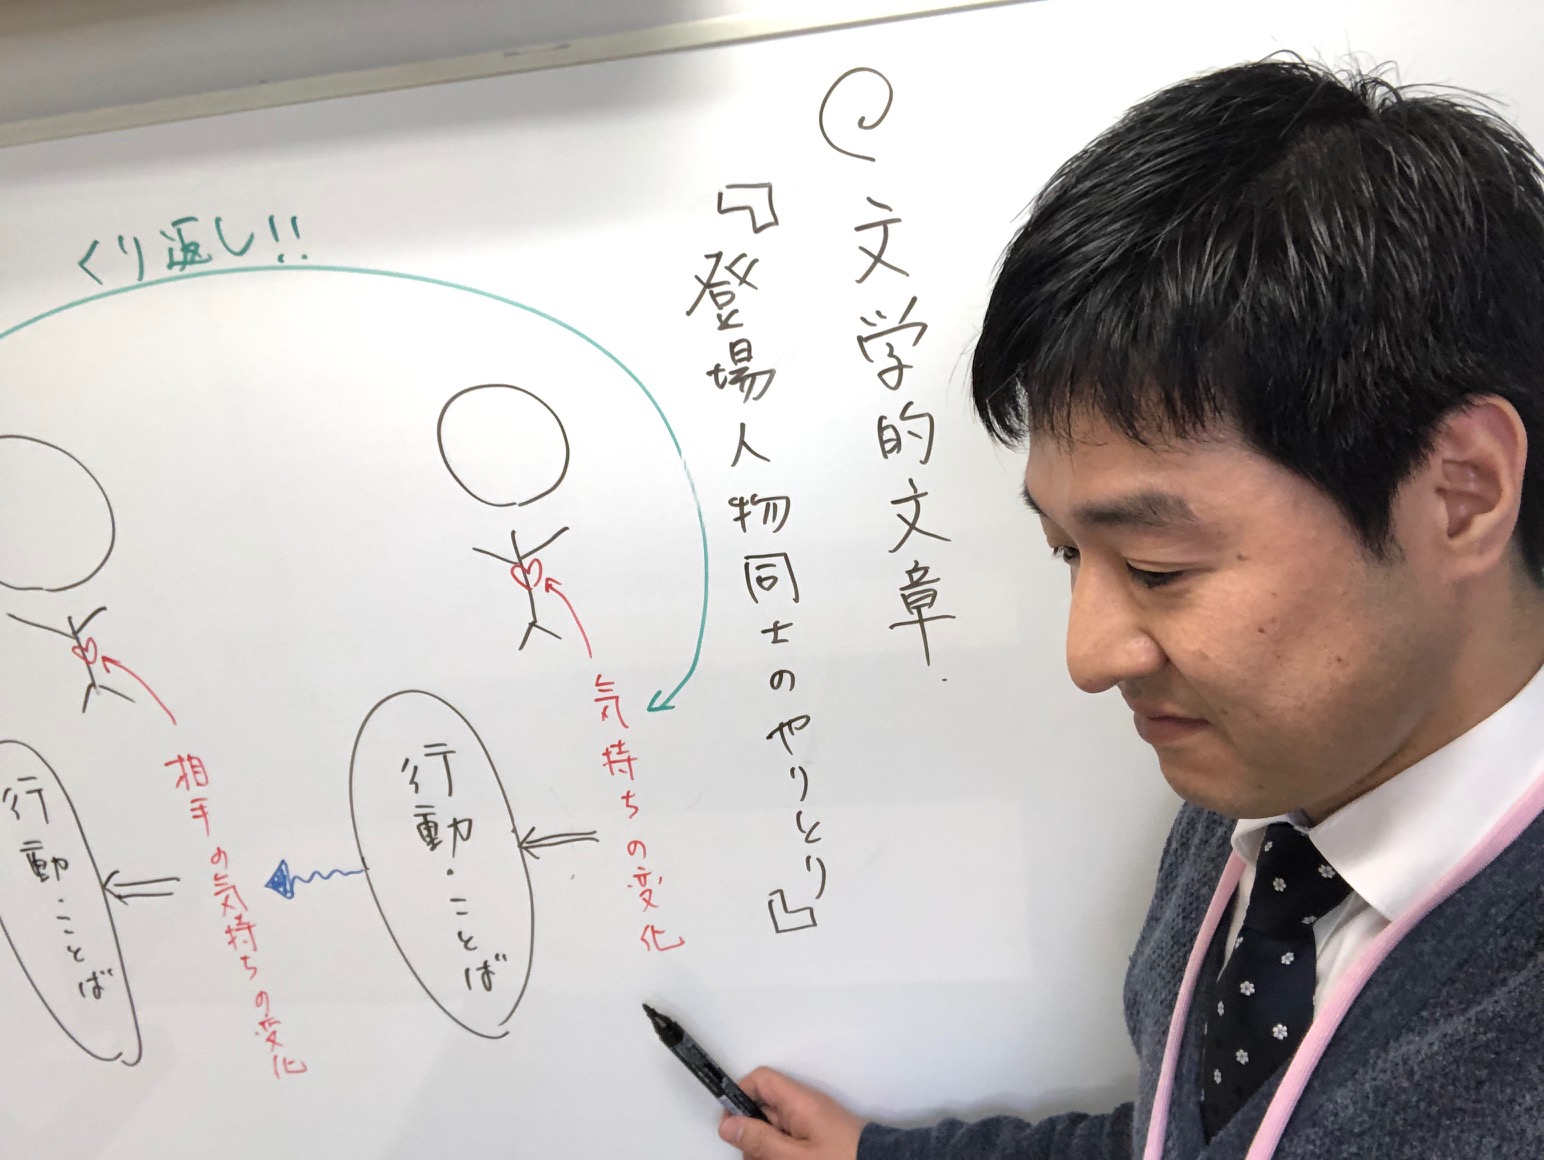 文学的文章
『登場人物同士のやりとり』
気持ちの変化
行動・ことば
相手の気持ちの変化
行動・ことば
くり返し!!